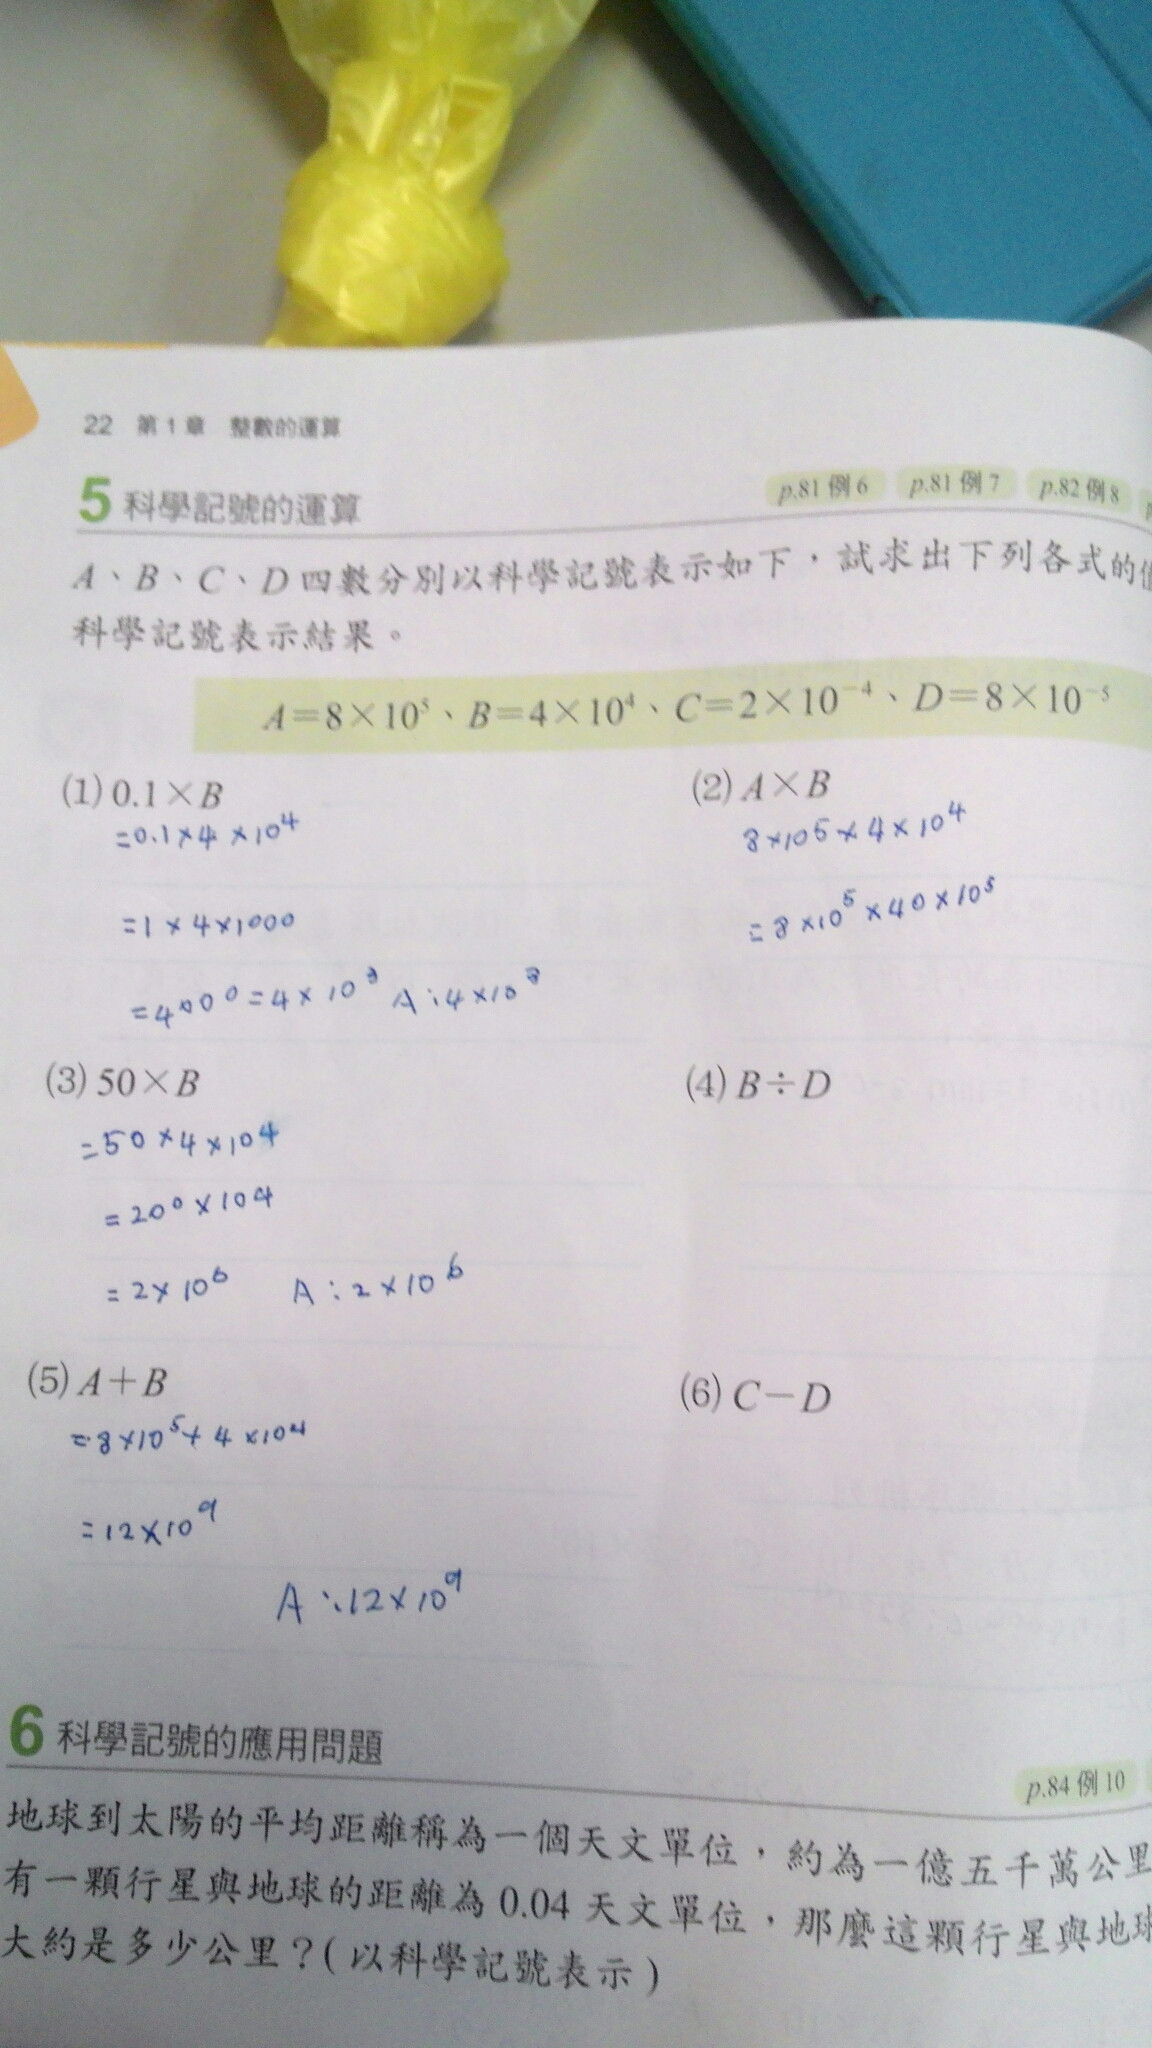 22 第1章 整數的運算
5 科學記號的運算 p.81例6 p.81例7 p.82例8
A、B、C、D四數分別以科學記號表示如下,試求出下列各式的
科學記號表示結果。
A=8×10⁵、B=4×10⁴、C=2×10⁻⁴、D=8×10⁻⁵
(1) 0.1×B
=0.1×4×10⁴
=1×4×1000
=4000=4×10³ A:4×10³
(2) A×B
8×10⁵×4×10⁴
=8×10⁵×40×10⁵
(3) 50×B
=50×4×10⁴
=200×10⁴
=2×10⁶ A:2×10⁶
(4) B÷D
(5) A+B
=8×10⁵+4×10⁴
=12×10⁹
A:12×10⁹
(6) C-D
6 科學記號的應用問題 p.84例10
地球到太陽的平均距離稱為一個天文單位,約為一億五千萬公里
有一顆行星與地球的距離為0.04天文單位,那麼這顆行星與地球
大約是多少公里?(以科學記號表示)